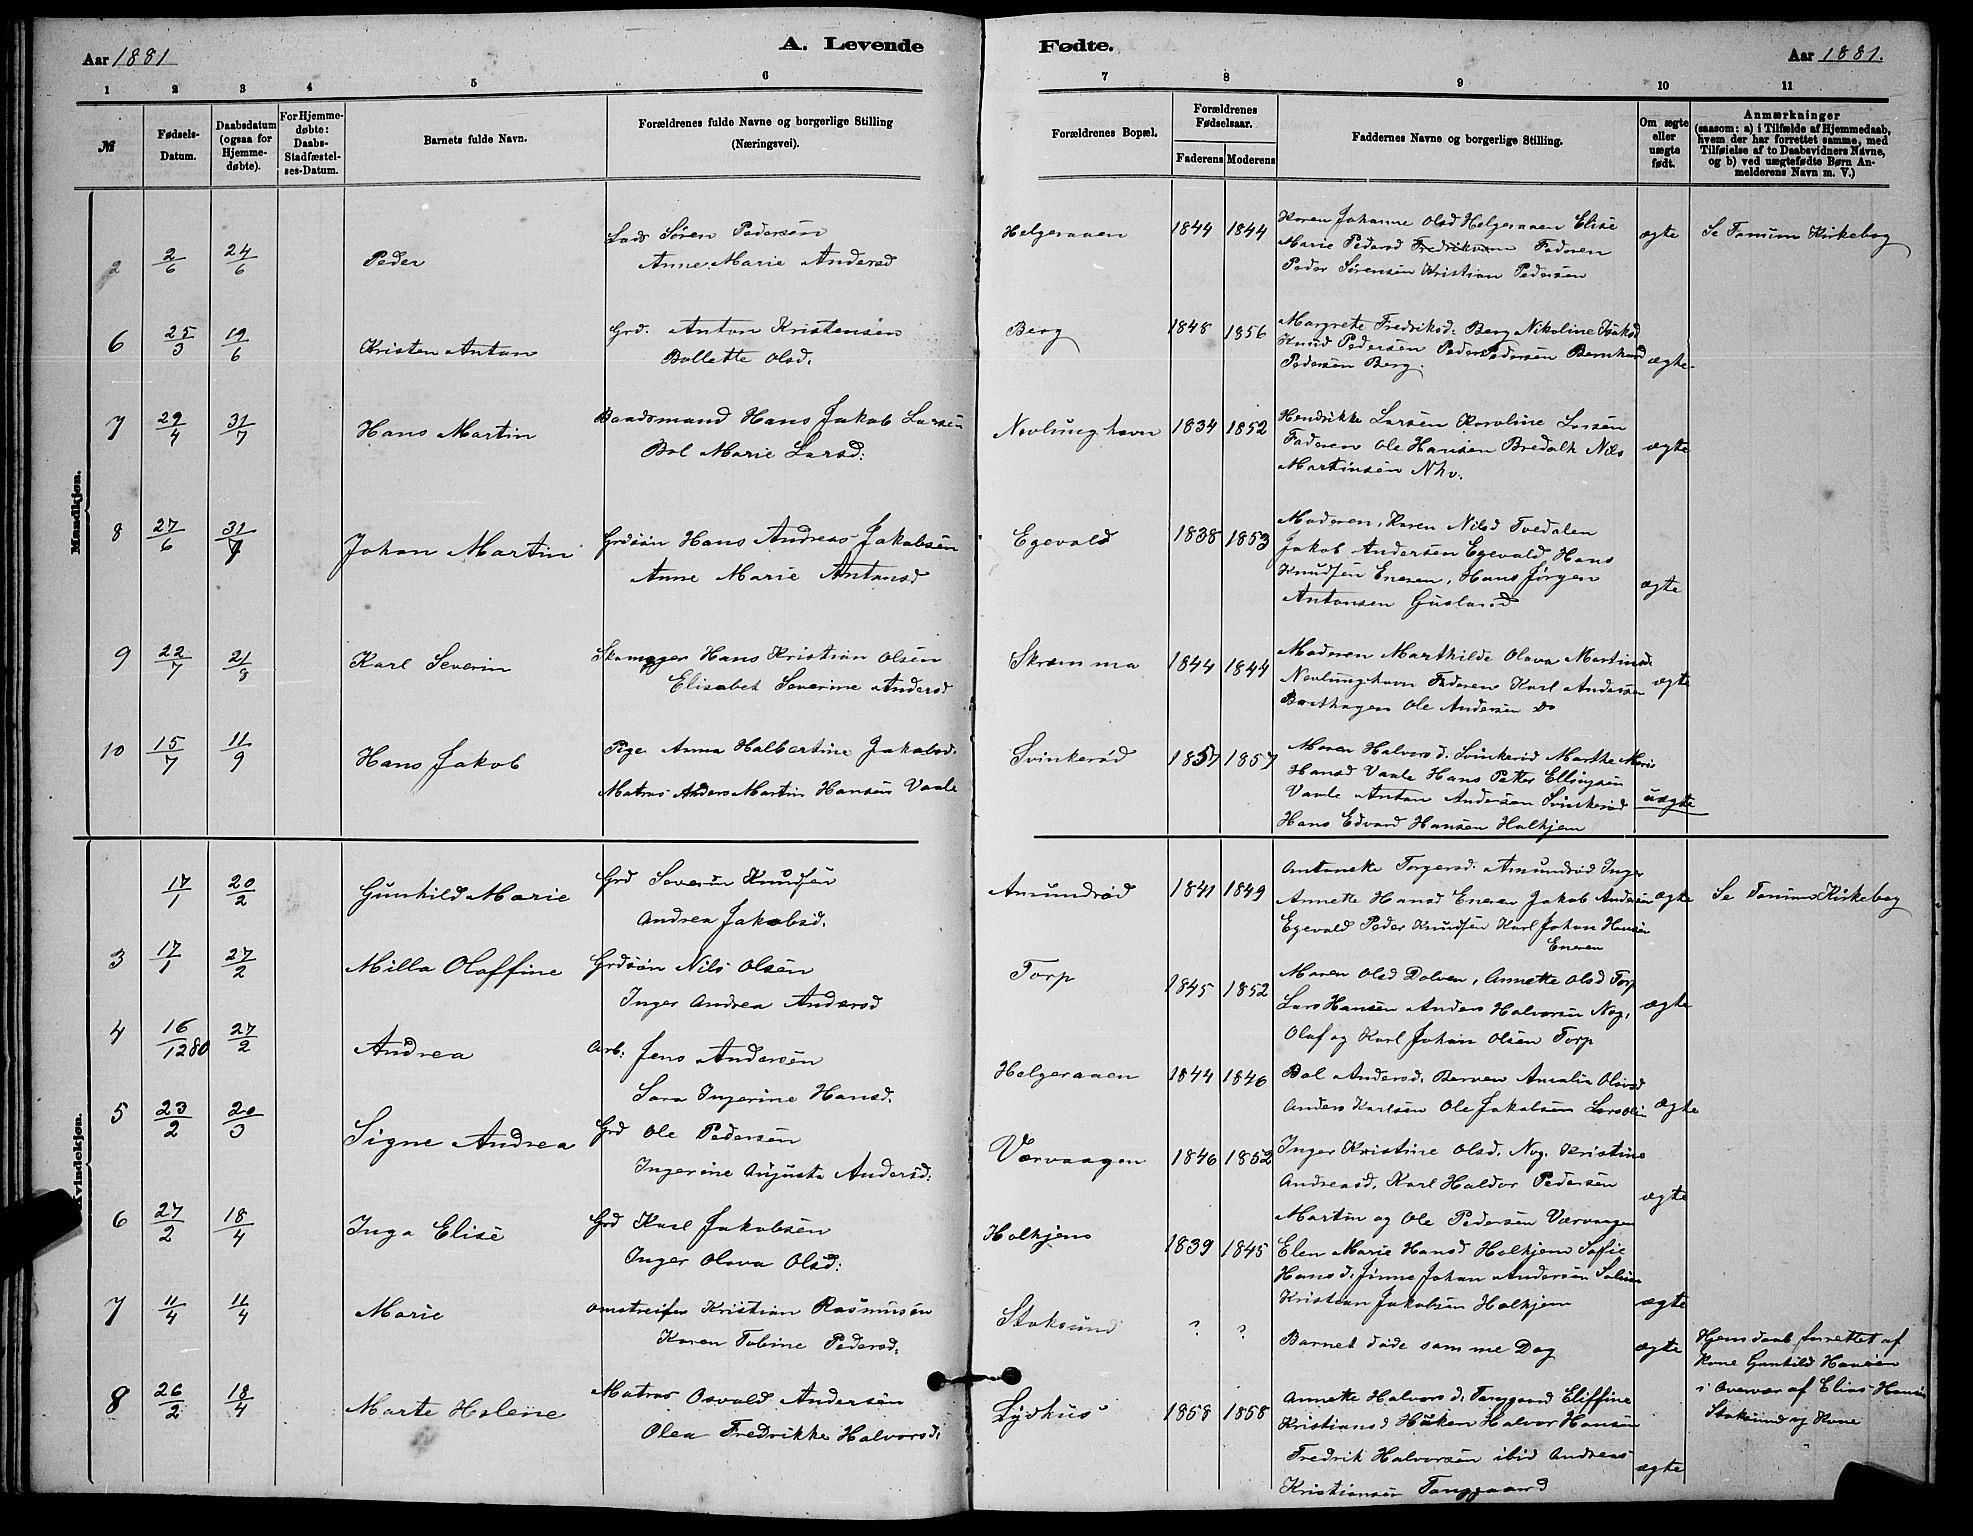 Aar 1881
A. Levende
Fødte.
Aar 1881.
1 2 3 4 5 6 7 8 9 10 11
№
Fødsels-Datum.
Daabsdatum (ogsaa for Hjemme-døbte).
For Hjemme-døbte: Daabs-Stadfæstel-ses-Datum.
Barnets fulde Navn.
Forældrenes fulde Navne og borgerlige Stilling (Næringsvei).
Forældrenes Bopæl.
Forældrenes Fødselsaar.
Faderens Moderens
Faddernes Navne og borgerlige Stilling.
Om ægte eller uægte født.
Anmærkninger
(saasom: a) i Tilfælde af Hjemmedaab,
hvem der har forrettet samme, med
Tilføielse af to Daabsvidners Navne,
og b) ved uægtefødte Børn An-
melderens Navn m. V.)
Mandkjøn.
2 2/6 24/6 Peder
Lods Søren Pedersen
Anne Marie Andersd
Helgeraaen 1844 1844
Karen Johanne Olsd Helgeraaen Elise
Marie Pedersd Fredriksværn Faderen
Peder Sørensen Kristian Pedersen
ægte
Se Tanum Kirkebog
6 25/3 19/6 Kristen Anton
Grd. Anton Kristensen
Bollette Olsd.
Berg 1848 1856
Margrete Fredriksd. Berg Nikoline Isaksd
Knud Pedersen Peder Pedersen Bernhard
Pedersen Berg.
ægte
7 29/4 31/7 Hans Martin
Baadsmand Hans Jakob Larsen
Bol Marie Larsd:
Nevlunghavn 1834 1852
Hendrikke Larsen Karoline Larsen
Faderen Ole Hansen Bredalh Nils
Martinsen Nhv.
ægte
8 27/6 31/7 Johan Martin
Grdsøn Hans Andreas Jakobsen
Anne Marie Antonsd
Egevald 1838 1853
Moderen, Karen Nilsd Tvedalen
Jakob Andersen Egevald Hans
Knudsen Eneren, Hans Jørgen
Antonsen Gusland
ægte
9 22/7 21/8 Karl Severin
Skomager Hans Kristian Olsen
Elisabet Severine Andersd
Skræmma 1844 1844
Moderen Marthilde Olava Martinsd.
Nevlunghavn Faderen Karl Andersen
Barthagen Ole Andersen Do
ægte
10 15/7 11/9 Hans Jakob
Pige Anna Halbertine Jakobsd.
Matros Anders Martin Hansen Vaale
Svinkerød 1857 1857
Maren Halvorsd. Svinkerød Marthe Marie
Hansd Vaale Hans Petter Ellingsen
Vaale Anton Andersen Svinkerød
Hans Edvard Hansen Halkjem
uægte
Kvindekjøn.
17/1 20/2 Gunhild Marie
Grd Severin Knudsen
Andrea Jakobsd.
Amundrød 1841 1849
Antonette Torgersd. Amundrød Inger
Annette Hansd Eneren Jakob Andersen
Egevald Peder Knudsen Karl Johan Hansen
Eneren
ægte
Se Tanum Kirkebog
3 17/1 27/2 Milla Olaffine
Grdsøn Nils Olsen
Inger Andrea Andersd
Torp 1845 1852
Maren Olsd Dolven, Annette Olsd Torp
Lars Hansen Anders Halvorsen Nog,
Olaf og Karl Johan Olsen Torp
ægte
4 16/12 80 27/2 Andrea
Arb: Jens Andersen
Sara Ingerine Hansd.
Helgeraaen 1844 1846
Bol Andersd. Berven Amalia Olavsd
Anders Karlsen Ole Jakobsen Lars Olsen
ægte
5 23/2 20/3 Signe Andrea
Grd Ole Pedersen
Ingerine Augusta Andersd:
Værvaagen 1846 1852
Inger Kristine Olsd. Nog. Kristine
Andreasd. Karl Haldor Pedersen
Martin og Ole Pedersen Værvaagen
ægte
6 27/2 18/4 Inga Elise
Grd Karl Jakobsen
Inger Olava Olsd:
Halkjem 1839 1845
Elen Marie Hansd Halkjem Sofie
Hansd. Jinne Johan Andersen
Kristian Jakobsen Halkjem
ægte
7 11/4 11/4 Marie
Omstreifer Kristian Rasmusen
Karen Tobine Pedersd.
Staksund ? ?
Barnet døde samme Dag
ægte
Hjemdaab forrettet af
Kone Gunhild Hansen
i Overvær af Elias Hansen
Staksund og Kone
8 26/2 18/4 Marte Helene
Matros Osvald Andersen
Olea Fredrikke Halvorsd.
Lydhus 1858 1858
Annette Halvorsd. Tanggaard Eliffine
Kristiansd Haaken Halvor Hansen
Fredrik Halvorsen ibid Andreas
Kristiansen Tanggaard
ægte